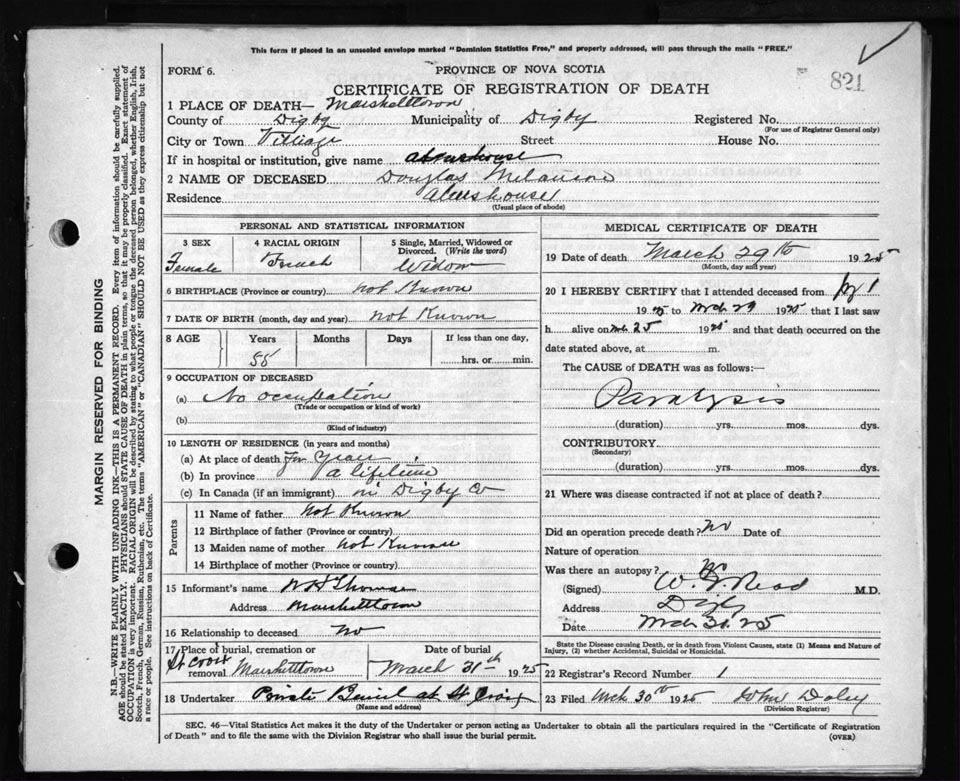 This form if placed in an unsealed envelope marked "Dominion Statistics Free," and properly addressed, will pass through the mails "FREE."
FORM 6.
PROVINCE OF NOVA SCOTIA
821
CERTIFICATE OF REGISTRATION OF DEATH
1 PLACE OF DEATH— Marshalltown
County of Digby Municipality of Digby Registered No.
(For use of Registrar General only)
City or Town Village Street House No.
If in hospital or institution, give name almshouse
2 NAME OF DECEASED Douglas Melanson
Residence Almshouse
(Usual place of abode)
PERSONAL AND STATISTICAL INFORMATION
3 SEX
Female
4 RACIAL ORIGIN
French
5 Single, Married, Widowed or Divorced. (Write the word)
Widow
6 BIRTHPLACE (Province or country) not Known
7 DATE OF BIRTH (month, day and year) not Known
8 AGE
Years
Months
Days
If less than one day,
55
hrs. or min.
9 OCCUPATION OF DECEASED
(a) No occupation
(Trade or occupation or kind of work)
(b)
(Kind of industry)
10 LENGTH OF RESIDENCE (in years and months)
(a) At place of death
(b) In province a lifetime
(c) In Canada (if an immigrant) in Digby Co
Parents
11 Name of father not Known
12 Birthplace of father (Province or country)
13 Maiden name of mother not Known
14 Birthplace of mother (Province or country)
15 Informant's name Thomas
Address Marshalltown
16 Relationship to deceased No
17 Place of burial, cremation or removal Marshalltown
Date of burial
March 31th 1925
18 Undertaker Private Burial at St Croix
(Name and address)
MEDICAL CERTIFICATE OF DEATH
19 Date of death March 29th 1925
(Month, day and year)
20 I HEREBY CERTIFY that I attended deceased from
1925 to Mch 29 1925 that I last saw
h alive on Mch 25 1925 and that death occurred on the
date stated above, at m.
The CAUSE of DEATH was as follows:—
Paralysis
(duration) yrs. mos. dys.
CONTRIBUTORY
(Secondary)
(duration) yrs. mos. dys.
21 Where was disease contracted if not at place of death?
Did an operation precede death? No Date of
Nature of operation
Was there an autopsy? No
(Signed) Read M.D.
Address Digby
Date Mch 30. 25
State the Disease causing Death, or in death from Violent Causes, state (1) Means and Nature of Injury, (2) whether Accidental, Suicidal or Homicidal.
22 Registrar's Record Number 1
23 Filed Mch 30th 1925 John Daley
(Division Registrar)
SEC. 46—Vital Statistics Act makes it the duty of the Undertaker or person acting as Undertaker to obtain all the particulars required in the "Certificate of Registration
of Death" and to file the same with the Division Registrar who shall issue the burial permit.
(OVER)
MARGIN RESERVED FOR BINDING
N.B.—WRITE PLAINLY WITH UNFADING INK—THIS IS A PERMANENT RECORD. Every item of information should be carefully supplied.
AGE should be stated EXACTLY. PHYSICIANS should STATE CAUSE OF DEATH in plain terms, so that it may be properly classified. Exact statement of
OCCUPATION is very important. RACIAL ORIGIN will be described by stating to what people or tongue the deceased person belonged, whether English, Irish,
Scotch, French, German, Russian, Ruthenian, etc. The terms "AMERICAN" or "CANADIAN" SHOULD NOT BE USED as they express citizenship but not
a race or people. See instructions on back of Certificate.